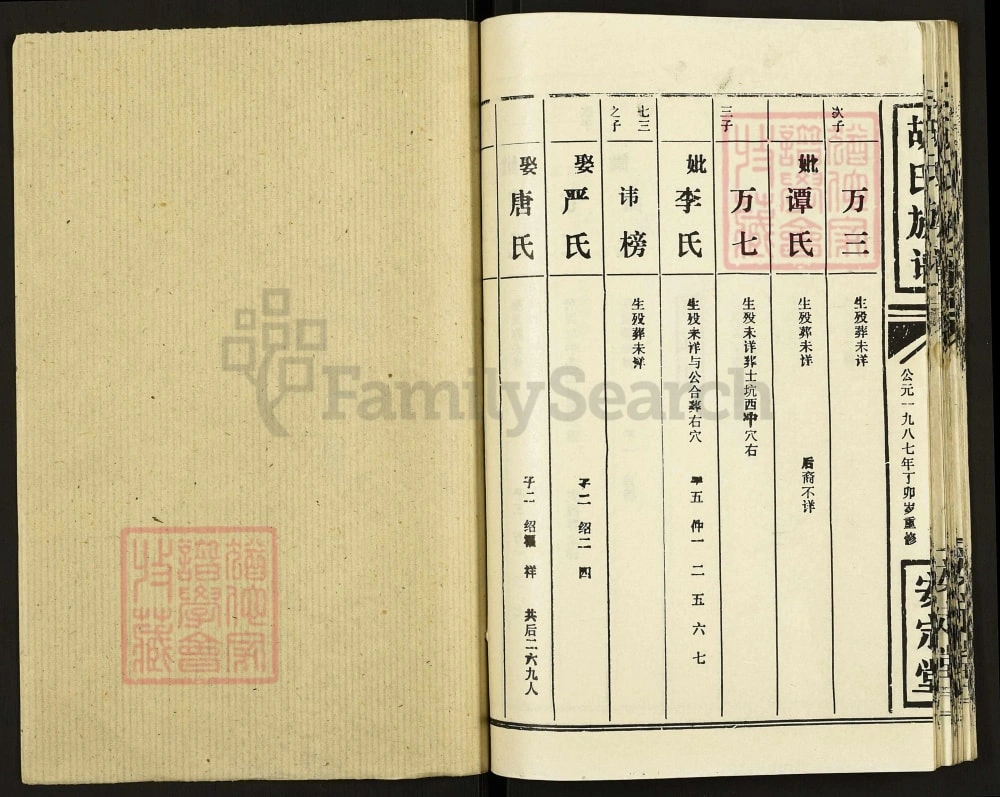 胡氏族谱
公元一九八七年丁卯岁重修
安定堂
次子
万三
生殁葬未详
妣谭氏
生殁葬未详 后裔不详
三子
万七
生殁未详葬土坑西冲穴右
妣李氏
生殁未详与公合葬右穴 子五 仲一 二 五 六 七
七三之子
讳榜
生殁葬未详
娶严氏
子二 绍二 四
娶唐氏
子二 绍福 祥 共后二六九人
FamilySearch
譜學會
收藏
譜學會
收藏